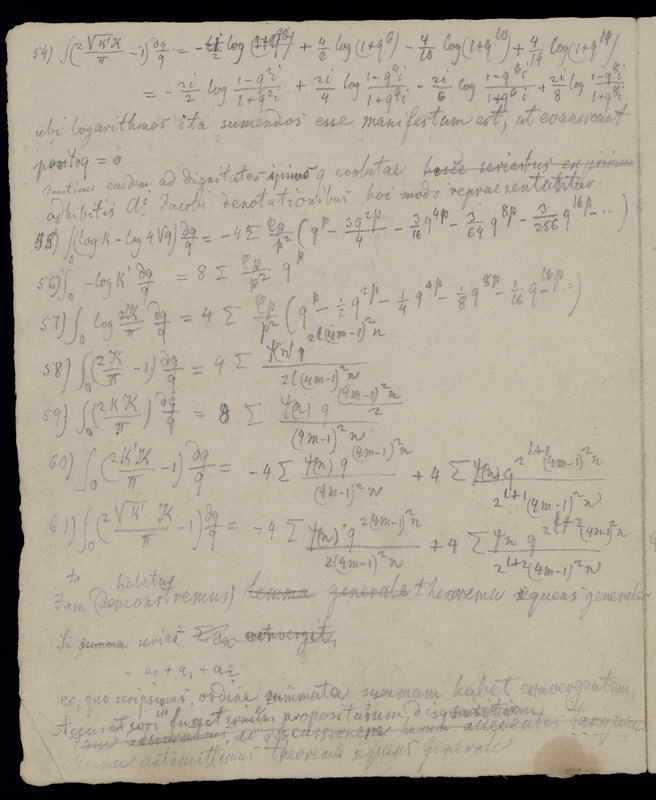 54) ∫(2√k'K/π - 1) ∂q/q = -4/2 log (1+q²) + 4/6 log (1+q⁶) - 4/10 log (1+q¹⁰) + 4/14 log (1+q¹⁴)
= -2i/2 log (1-q²i)/(1+q²i) + 2i/4 log (1-q⁴i)/(1+q⁴i) - 2i/6 log (1-q⁶i)/(1+q⁶i) + 2i/8 log (1-q⁸i)/(1+q⁸i)
ubi logarithmos ita sumendos esse manifestum est, ut evanescant
posito q = 0
functiones eaedem ad dignitates ipsius q evolutae
adhibitis Cl. Jacobi denotationibus hoi modo repraesentantur
55) ∫₀(log k - log 4√q) ∂q/q = -4 Σ φp/p² (q^p - 3q^2p/4 - 3/16 q^4p - 3/64 q^8p - 3/256 q^16p - ...)
56) ∫₀ -log k' ∂q/q = 8 Σ φp/p² q^p
57) ∫₀ log 2K/π ∂q/q = 4 Σ φp/p² (q^p - 1/2 q^2p - 1/4 q^4p - 1/8 q^8p - 1/16 q^16p ...)
58) ∫₀(2K/π - 1) ∂q/q = 4 Σ ψ(n) q^2^l(4m-1)²n / 2^l(4m-1)²n
59) ∫₀(2kK/π) ∂q/q = 8 Σ ψ(n) q^(4m-1)²n/2 / (4m-1)²n
60) ∫₀(2k'K/π - 1) ∂q/q = -4 Σ ψ(n) q^(4m-1)²n / (4m-1)²n + 4 Σ ψ(n) q^2^l+1(4m-1)²n / 2^l+1(4m-1)²n
61) ∫₀(2√k' K/π - 1) ∂q/q = -4 Σ ψ(n) q^2(4m-1)²n / 2(4m-1)²n + 4 Σ ψn q^2^l+2(4m-1)²n / 2^l+2(4m-1)²n
habetur
Jam (demonstremus) lemma generale theorema sequens generale
Si summa series convergit,
= a₀ + a₁ + a₂
eo, quo scripsimus, ordine summata summam habet convergentem,
functionis propositarum
lemma antemittimus theorema sequens generale